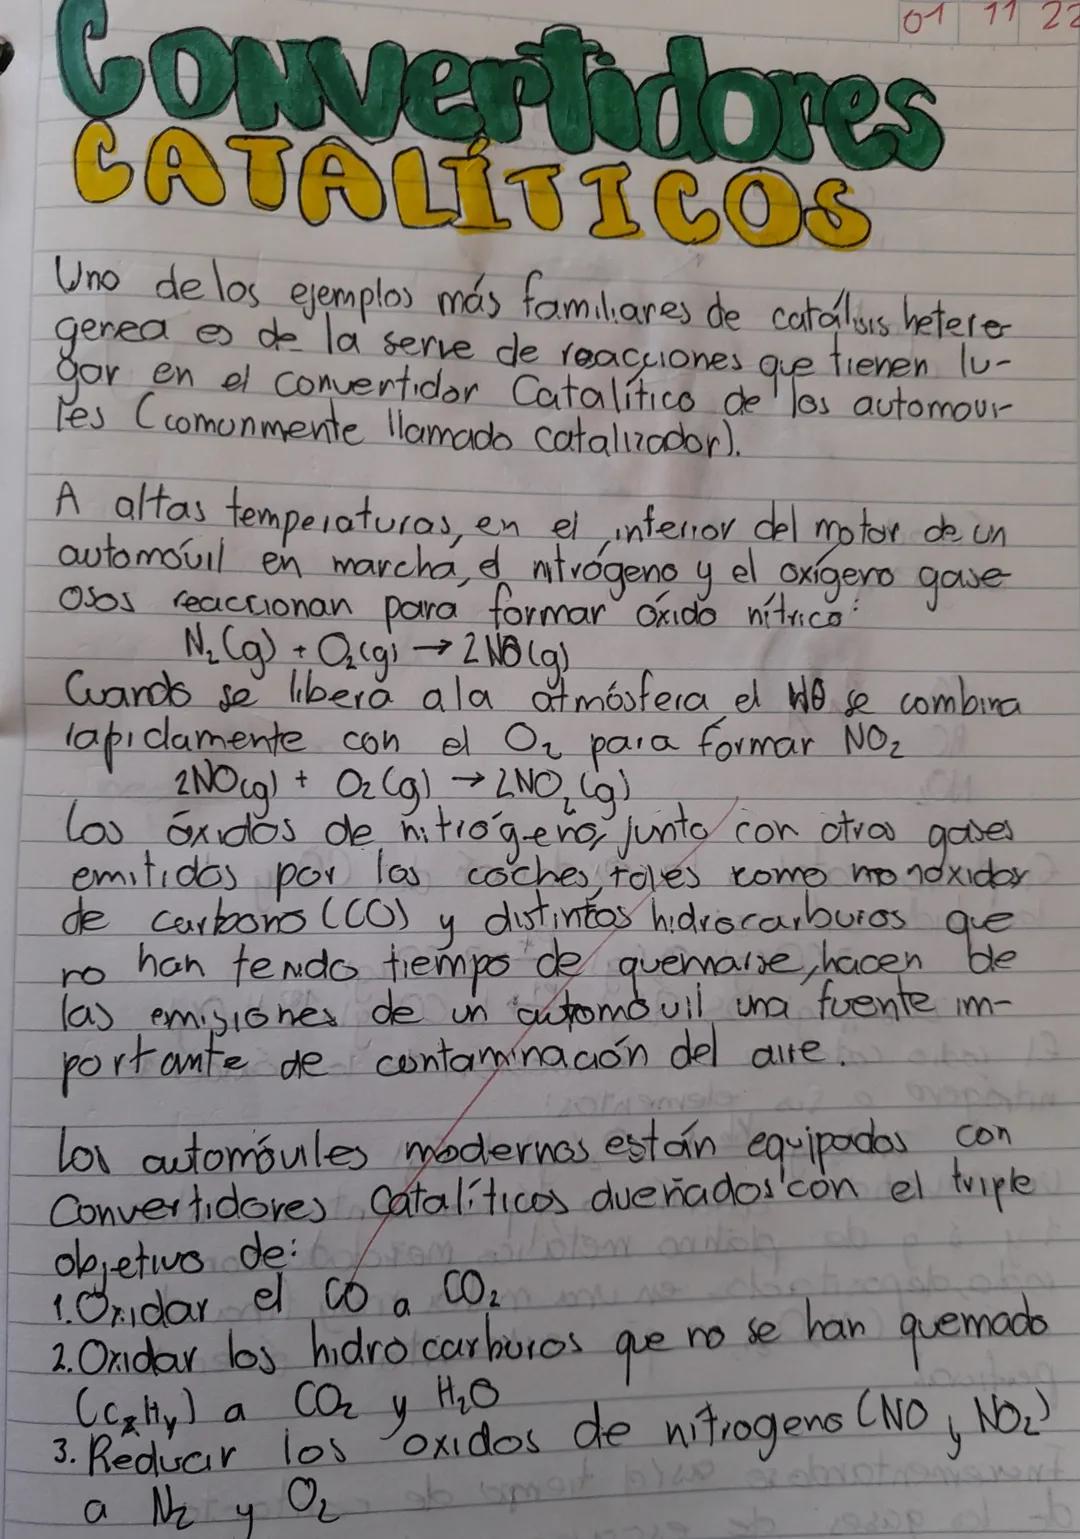 01 11 22
Convertidores
CATALÍTICOS
Uno de los ejemplos más familiares de catálisis hetere
genea es de la serie de reacciones que tienen lu-
gar en el convertidor Catalítico de los automovi-
les (comunmente llamado catalizador).
A altas temperaturas, en el interior del motor de un
automóvil en marcha, el nitrógeno y el oxígeno gase
osos reaccionan para formar óxido nítrico:
N₂(g) + O₂(g) → 2NO(g)
Cuando se libera a la atmósfera el NO se combina
rapidamente con el O₂ para formar NO₂
2NO(g) + O₂(g) → 2NO₂(g)
Los óxidos de nitrógeno, junto con otros gases
emitidos por los coches, tales como monóxidos
de carbono (CO) y distintos hidrocarburos que
no han tenido tiempo de quemarse, hacen de
las emisiones de un automóvil una fuente im-
portante de contaminación del aire.
Los automóviles modernos están equipados con
Convertidores Catalíticos dueñados con el triple
objetivo de:
1. Oxidar el CO a CO₂
2. Oxidar los hidrocarburos que no se han quemado
(CxHy) a CO₂ y H₂O
3. Reducir los oxidos de nitrogeno (NO y NO₂)
a N₂ y O₂